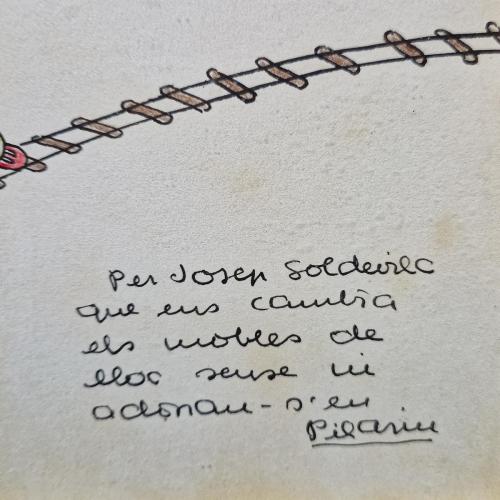 Per Josep Soldevila
que ens cambia
els mobles de
lloc sense ni
adonar-s'en
Pilarin